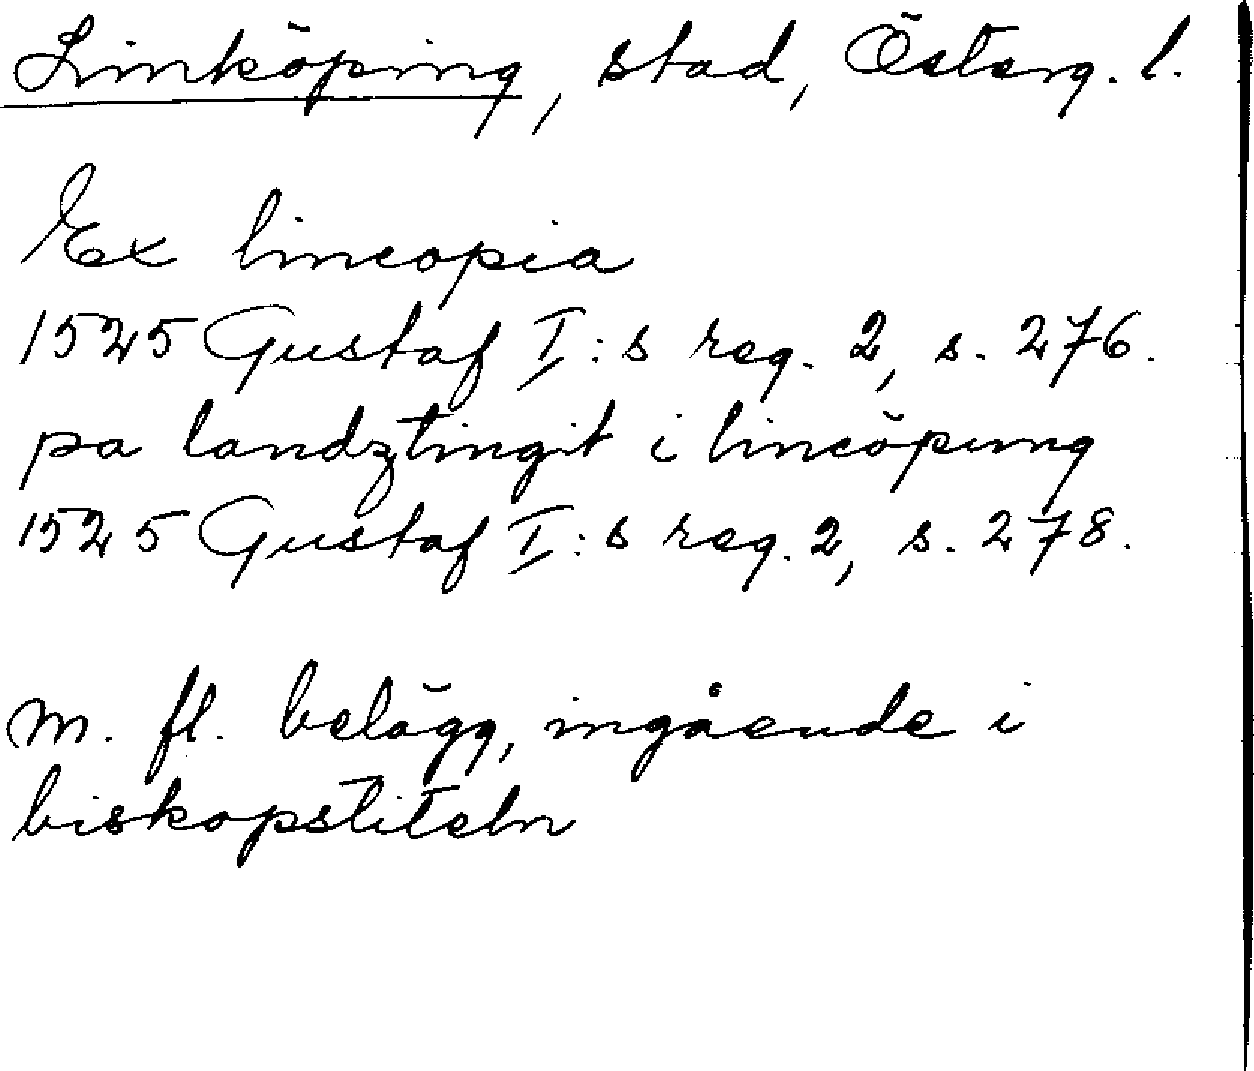 Linköping, stad, Österg. l.
Ex lincopia
1525 Gustaf I:s reg. 2, s. 276.
pa landztingit i lincöpung
1525 Gustaf I:s reg. 2, s. 278.
m. fl. belägg, ingående i
biskopstiteln